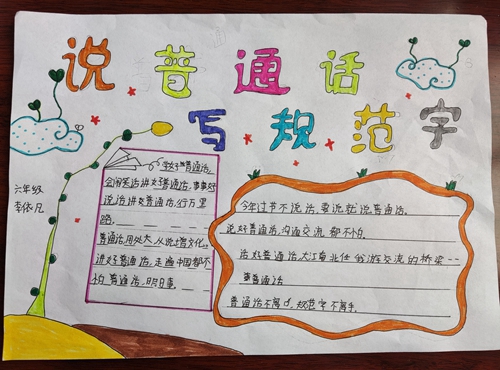 说普通话
写规范字
六年级
学好普通话,
会闹笑话讲好普通话,事事好
说话讲好普通话,行万里
路。
普通话,用处大,从说话增文化。
讲好普通话,走遍中国都不
怕 普通话,明日事
今年过节不说话,要说就说普通话。
说好普通话,沟通交流都不怕。
话好普通话大江南北任我游交流的桥梁--
事普通话
普通话不离口,规范字不离手。